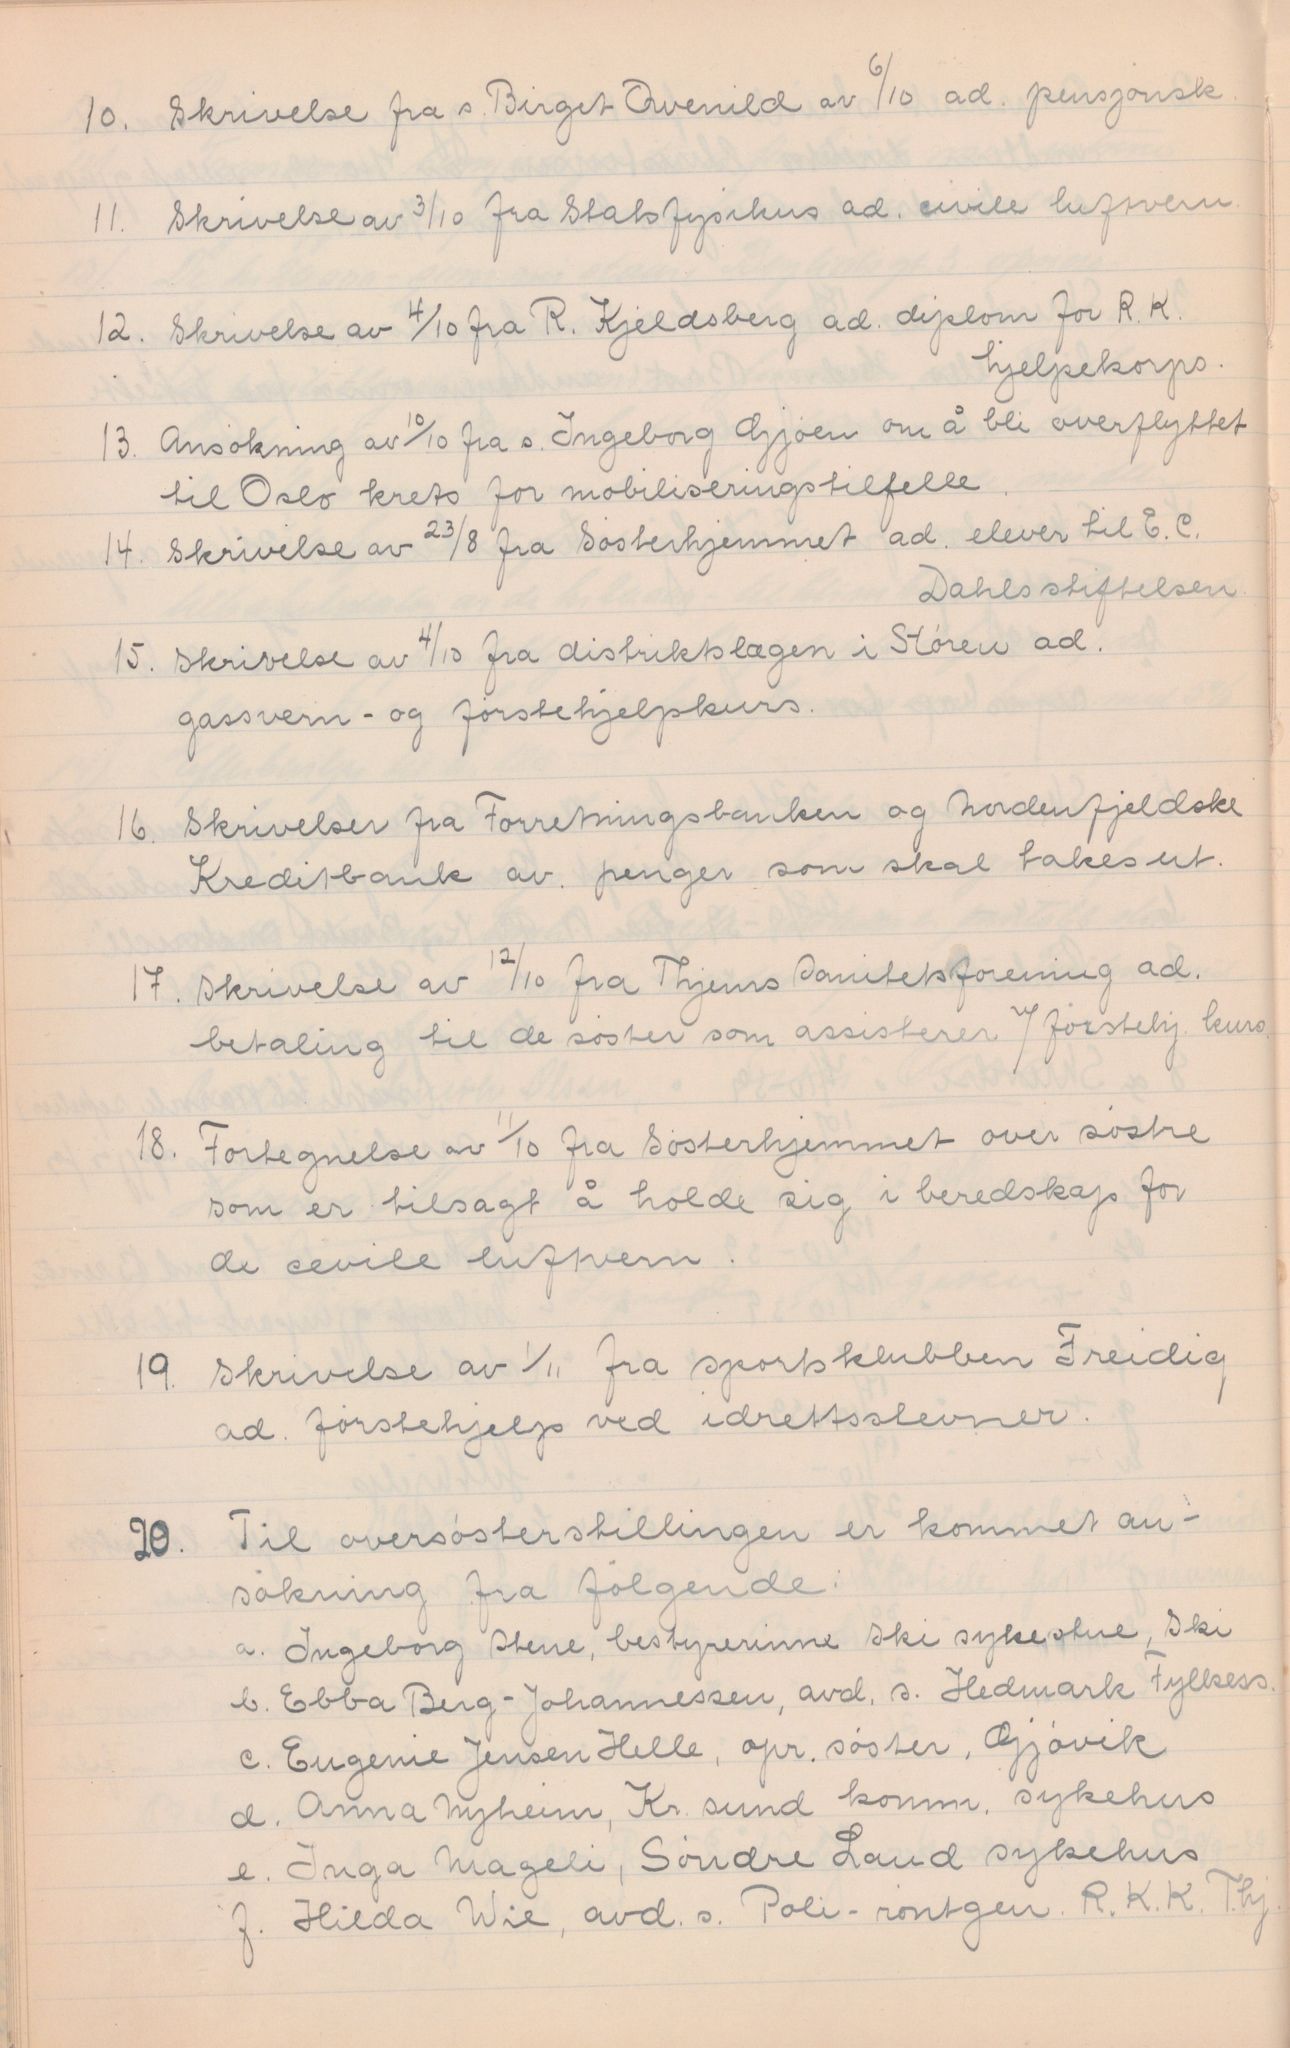 10. Skrivelse fra s. Birget Qvenild av 6/10 ad. pensjonsk.
11. Skrivelse av 3/10 fra Statsfysikus ad. civile luftvern.
12. Skrivelse av 4/10 fra R. Kjeldsberg ad. diplom for R.K.
hjelpekorps.
13. Ansøkning av 10/10 fra s. Ingeborg Gjøen om å bli overflyttet
til Oslo krets for mobiliseringstilfelle.
14. Skrivelse av 23/8 fra Søsterhjemmet ad. elever til E.C.
Dahls stiftelsen.
15. Skrivelse av 4/10 fra distriktslægen i Støren ad.
gassvern- og førstehjelpkurs.
16. Skrivelser fra Forretningsbanken og Nordenfjeldske
Kreditbank av. penger som skal takes ut.
17. Skrivelse av 12/10 fra Thjems Sanitetsforening ad.
betaling til de søster som assisterer v/ førstehj. kurs.
18. Fortegnelse av 11/10 fra Søsterhjemmet over søstre
som er tilsagt å holde sig i beredskap for
de cevile luftvern.
19. Skrivelse av 1/11 fra sportsklubben Freidig
ad. førstehjelp ved idrettsstevner.
20. Til oversøsterstillingen er kommet an-
søkning fra følgende:
a. Ingeborg Stene, bestyrerinne Ski sykestue, Ski
b. Ebba Berg-Johannessen, avd. s. Hedmark Fylkess.
c. Eugenie Jensen Helle, opr. søster, Gjøvik
d. Anna Nyheim, Kr. sund komm. sykehus
e. Inga Mageli, Søndre Land sykehus
f. Hilda Wie, avd. s. Poli-røntgen. R.K.K. Thj.